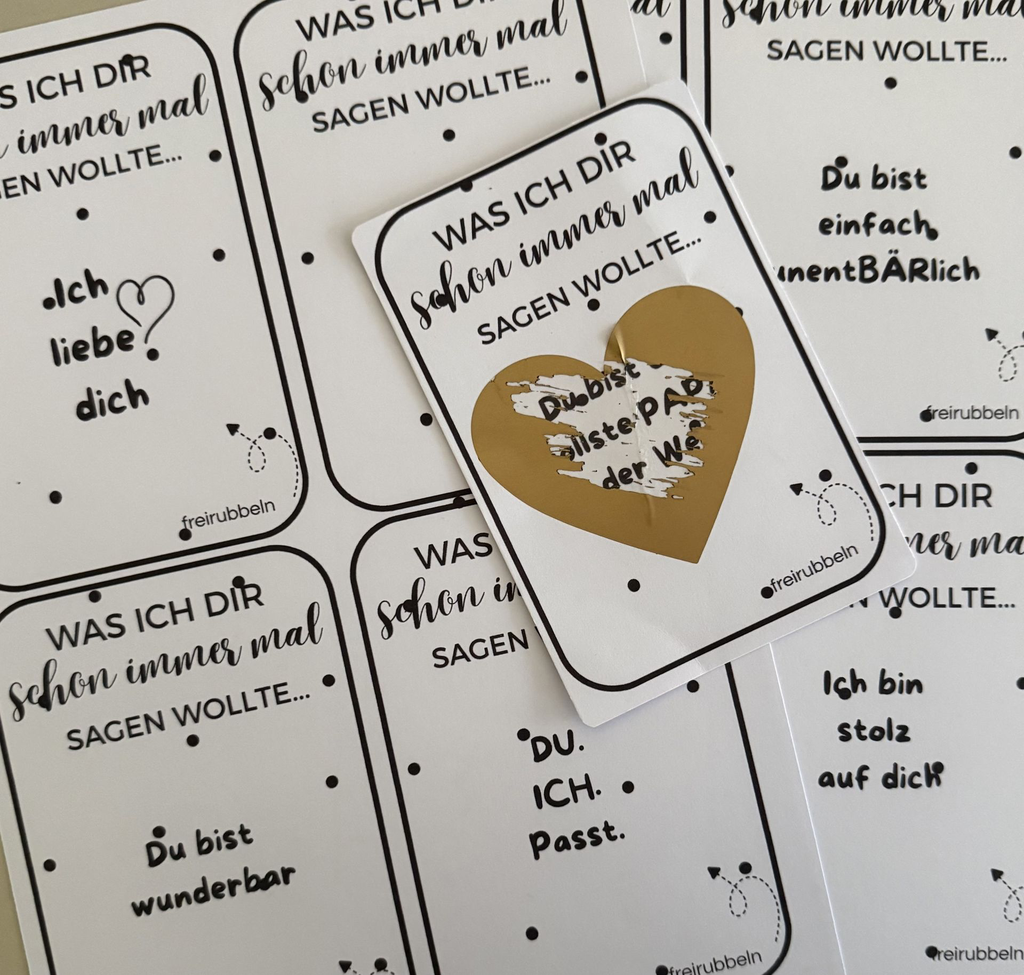 S ICH DIR
immer mal
EN WOLLTE...
Ich
liebe
dich
freirubbeln
WAS ICH DIR
schon immer mal
SAGEN WOLLTE...
schon immer mal
SAGEN WOLLTE...
Du bist
einfach
unentBÄRlich
freirubbeln
WAS ICH DIR
schon immer mal
SAGEN WOLLTE...
Du bist
llste PAP
der We
freirubbeln
WAS ICH DIR
schon immer mal
SAGEN WOLLTE...
Du bist
wunderbar
WAS
schon im
SAGEN
DU.
ICH.
Passt.
freirubbeln
CH DIR
mer ma
N WOLLTE...
Ich bin
stolz
auf dich
freirubbeln